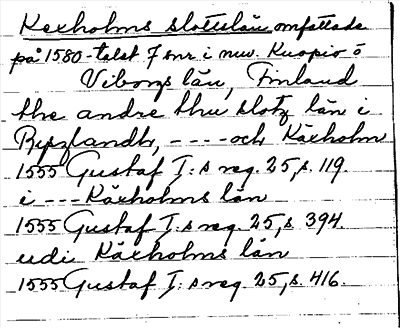 Kexholms slottslän omfattade
på 1580-talet 7 snr. i nuv. Kuopio o
Viborgs län, Finland
the andre thu slotz län i
Ryszlandh, ---- och Käxholm
1555 Gustaf I:s reg. 25, s. 119.
i --- Käxholms län
1555 Gustaf I:s reg. 25, s. 394.
udi Käxholms län
1555 Gustaf I:s reg. 25, s. 416.